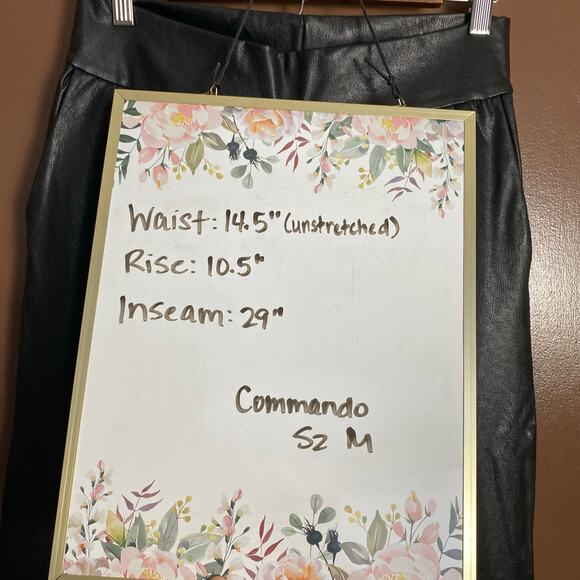 Waist: 14.5" (unstretched)
Rise: 10.5"
Inseam: 29"
Commando
Sz M